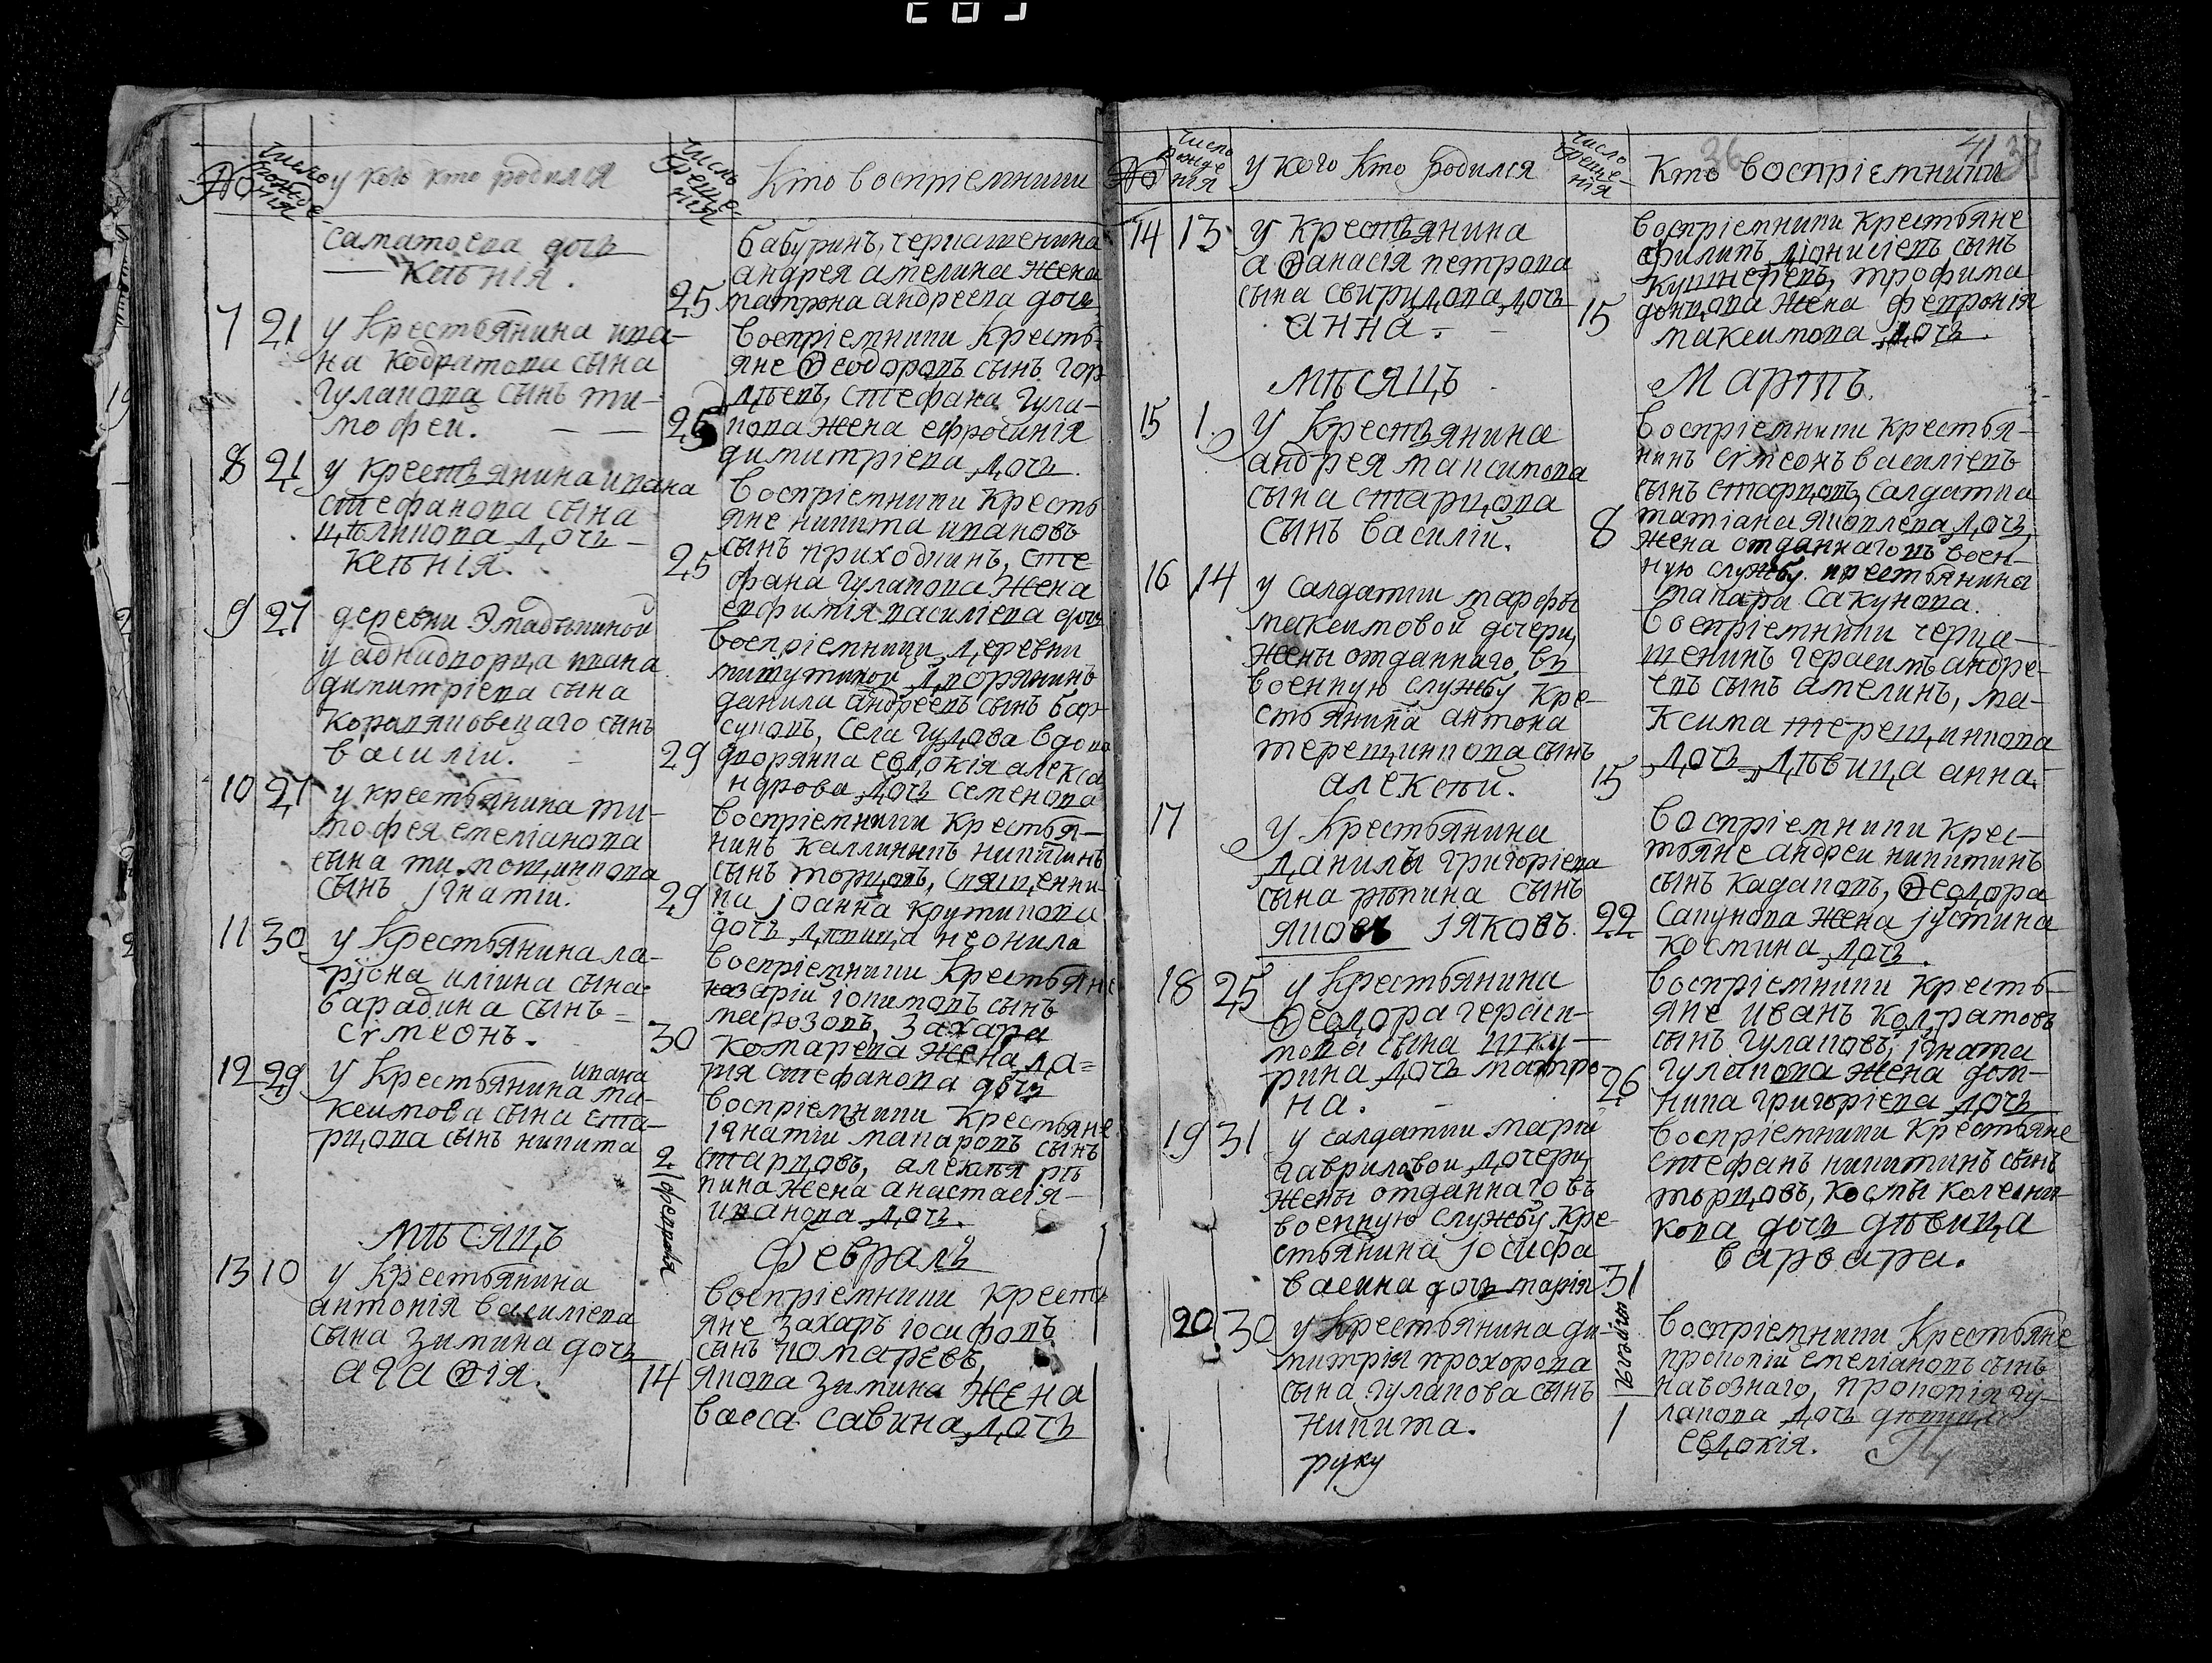 №
число рождения
у кого кто родился
число крещения
Кто восприемники
саматоева дочь
Ксѣнія.
бабуринъ, черкашенина
андрея амелина жена
25 матрона андреева дочь
7 21 у Крестьянина ива-
на кодратова сына
гулакова сынъ ти-
мофей.
восприемники Кресть-
яне Ѳеодоровъ сынъ гор-
стефана гула-
25 кова жена ефросинія
димитріева дочь.
8 21 у крестьянина ивана
стефанова сына
цѣликова дочь
Ксѣнія.
восприемники Кресть
яне никита ивановъ
сынъ приходкинъ, сте
25 фана гулакова жена
евфимія василіева дочь
9 27 деревни
у аднадворца ивана
димитріева сына
сынъ
василій.
восприемники деревни
дворянинъ
данила андреевъ сынъ бар-
суковъ, села гудова вдова
29 дворянка евдокія алекса
ндрова дочь семенова
10 27 у крестьянина ти-
мофея емеліанова
сына
сынъ ігнатій.
восприемники Крестья-
нинъ каллинникъ никитинъ
сынъ торцовъ, священни-
29 ка іоанна крутикова
дочь дѣвица неонила
11 30 у Крестьянина ла-
ріона иліина сына
барадина сынъ
сѵмеонъ.
восприемники Крестьяне
назарій сынъ
марозовъ, захара
30 комарева жена да-
рія стефанова дочь
12 29 у Крестьянина ивана ма-
ксимова сына ста-
рцова сынъ никита
восприемники Крестьяне
ігнатій макаровъ сынъ
2 февраля старцовъ, алексѣя рѣ
пина жена анастасія
иванова дочь.
мѣсяцъ Февраль
13 10 у Крестьянина
антонія василіева
сына зимина дочь
агаѳія.
восприемники кресть
яне захаръ іосифовъ
сынъ комаревъ,
14 якова зимина жена
васса савина дочь
№
число рождения
у кого кто родился
число крещенія
Кто воспріемники
36 41 37
14 13 у Крестьянина
аѳанасія петрова
сына свиридова дочь
анна.
воспріемники Крестьяне
филипъ діонисіевъ сынъ
кушнеревъ, трофима
15 донцова жена февронія
максимова дочь.
мѣсяцъ Мартъ.
15 1 у Крестьянина
андрея максимова
сына старцова
сынъ василій.
воспріемники крестья-
нинъ сѵмеонъ василіевъ
сынъ старцовъ, салдатка
8 татіана яковлева дочь,
жена отданнаго въ воен-
ную службу крестьянина
макара сакунова.
16 14 у салдатки марфы
максимовой дочери,
жены отданнаго въ
военную службу кре-
стьянина антона
терещинкова сынъ
алексѣй.
воспріемники черка-
шенинъ герасимъ андре-
евъ сынъ амелинъ, ма-
ксима терещинкова
15 дочь дѣвица анна.
17 у Крестьянина
данилы григоріева
сына рѣпина сынъ
яковъ іяковъ.
воспріемники крес-
тьяне андрей никитинъ
сынъ кадаковъ, Ѳеодора
22 сапунова жена іустина
космина дочь.
18 25 у Крестьянина
Ѳеодора гераси-
мова сына шку-
рина дочь матро
на.
воспріемники Кресть-
яне иванъ кодратовъ
сынъ гулаковъ, ігната
26 гулакова жена дом-
ника григоріева дочь
19 31 у салдатки маріи
гавриловой дочери,
жены отданнаго въ
военную службу кре-
стьянина іосифа
васина дочь марія
воспріемники Крестьяне
стефанъ никитинъ сынъ
торцовъ, космы колесни-
кова дочь дѣвица
31 варвара.
20 30 у Крестьянина ди-
митрія прохорова
сына гулакова сынъ
никита.
апреля 1
воспріемники Крестьяне
прокопій емеліановъ сынъ
навознаго, прокопія гу-
лакова дочь дѣвица
евдокія.
руку